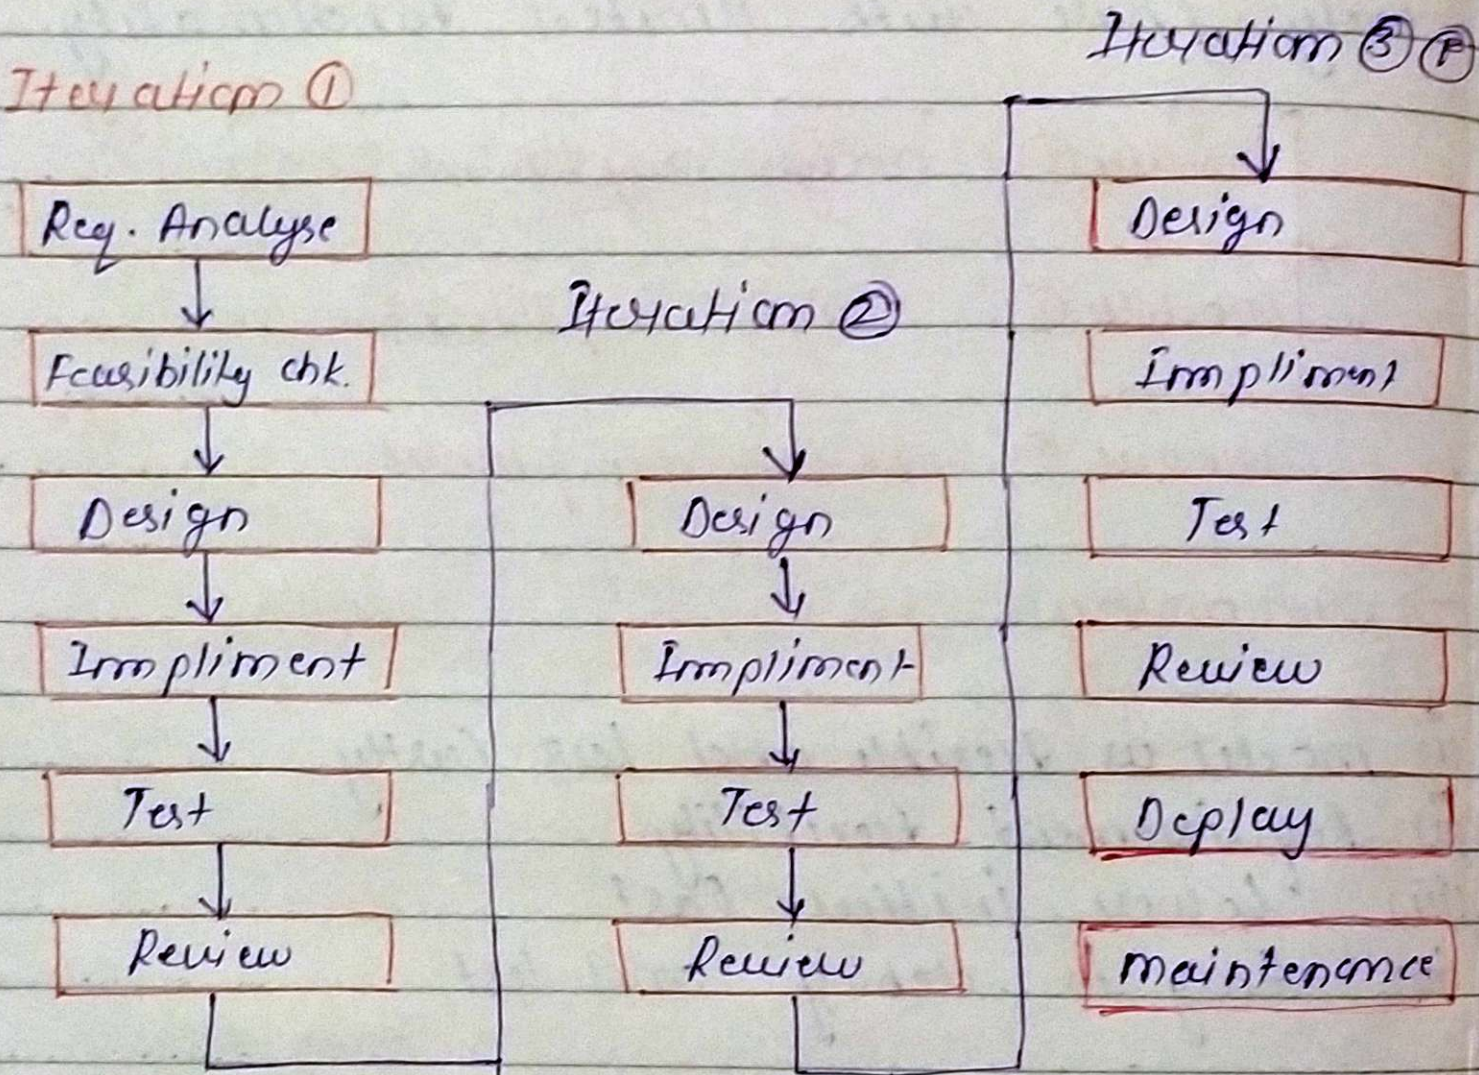 Iteration ①
Req. Analyse
Feasibility chk.
Design
Impliment
Test
Review
Iteration ②
Design
Impliment
Test
Review
Iteration ③ Ⓕ
Design
Impliment
Test
Review
Deploy
maintenance